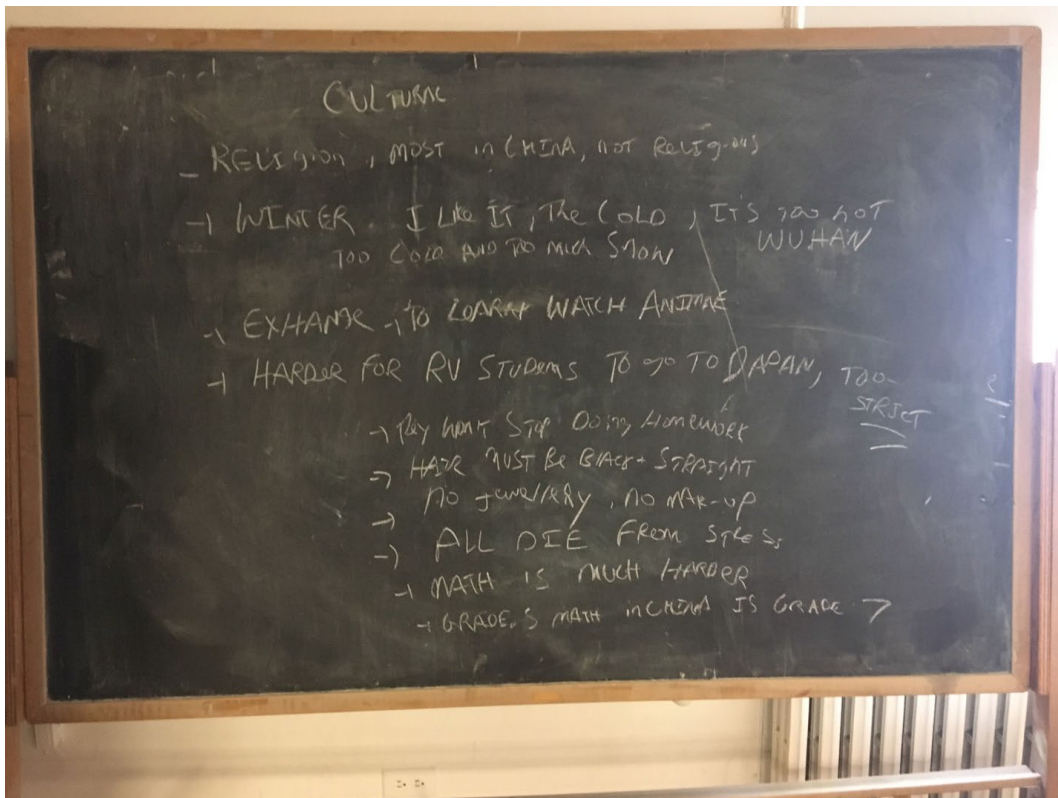 CULTURAL
- RELIGION, MOST in CHINA, not RELIgious
→ WINTER. I Like IT, THE COLD, IT'S TOO HOT
WUHAN
TOO COLD AND TOO MUCH SNOW
→ EXHANGE → TO WATCH ANIMAE
→ HARDER FOR RV STUDENTS TO go TO JAPAN, TOO
STRICT
→ THEY WON'T STOP DOING HOMEWORK
→ HAIR MUST BE BLACK + STRAIGHT
→ no jewellery, no MAK-UP
→ ALL DIE FROM STRESS
→ MATH IS MUCH HARDER
→ GRADE 5 MATH in CHINA IS GRADE 7